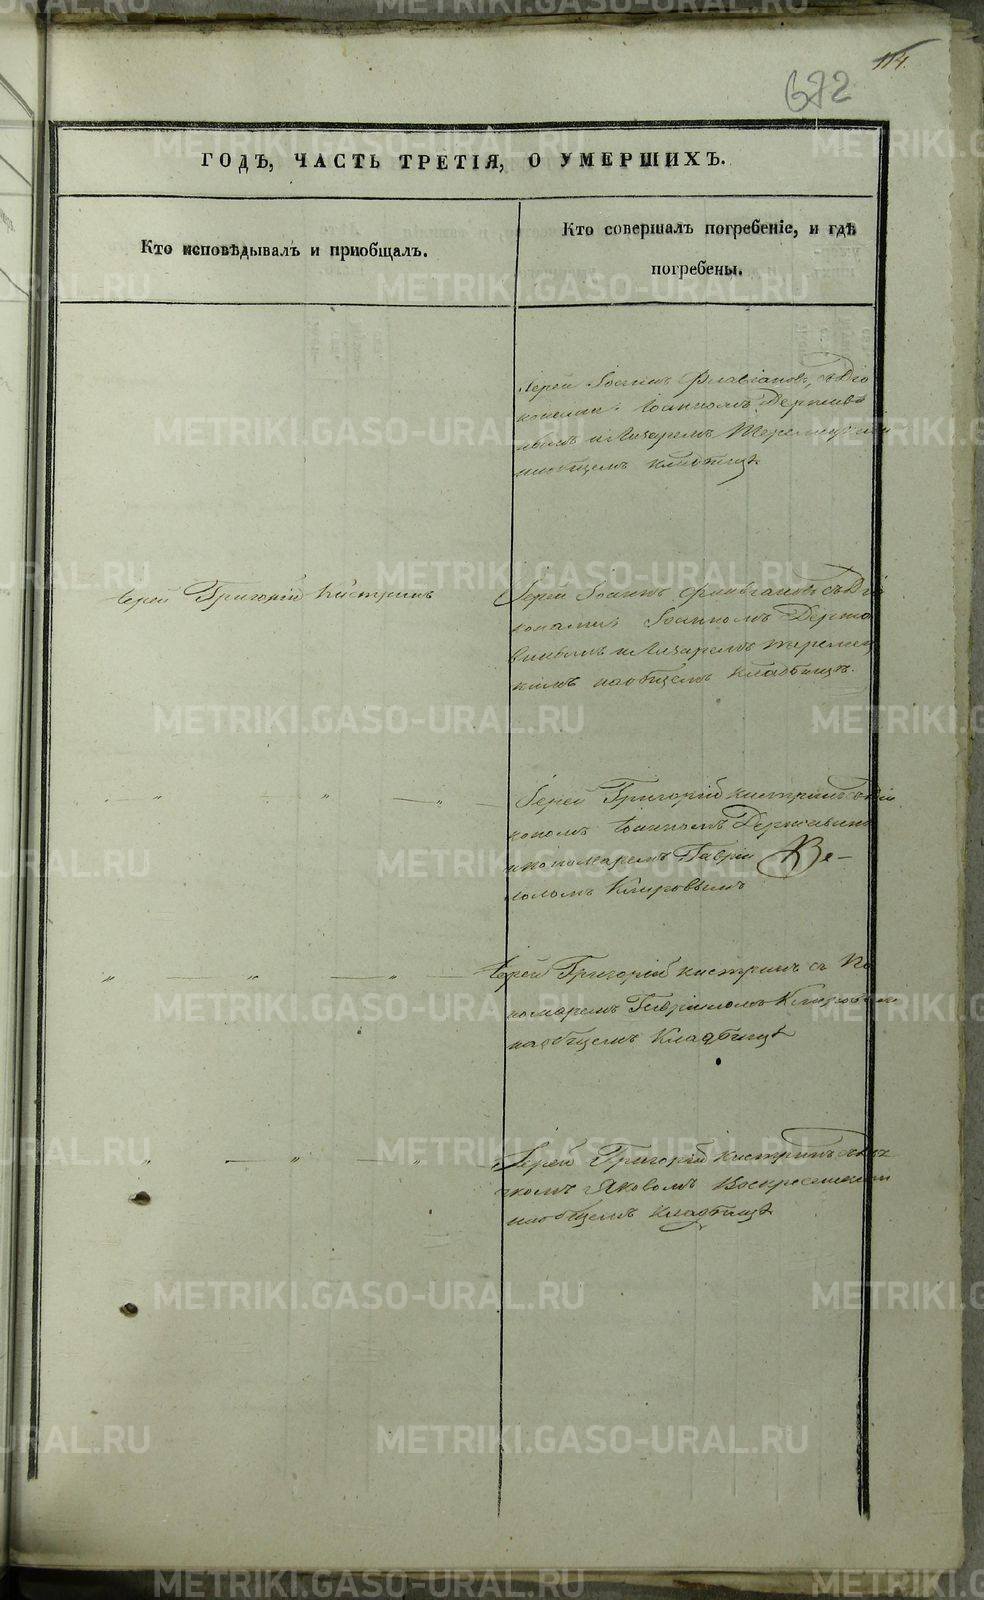 114.
672
ГОДЪ, ЧАСТЬ ТРЕТІЯ, О УМЕРШИХЪ.
Кто исповѣдывалъ и приобщалъ.
Кто совершалъ погребеніе, и гдѣ
погребены.
Іерей Іоаннъ Флавіановъ, съ Діа
конами: Іоанномъ Держави
нымъ и Лазаремъ
наобщемъ кладбищѣ
Іерей Григорій Кистринъ
Іерей Іоаннъ Флавіановъ съ Діа
конами: Іоанномъ Держа
винымъ и Лазаремъ
кимъ наобщемъ кладбищѣ.
Іерей Григорій Кистринъ съ Діа
кономъ Іоанномъ Державин
и пономаремъ Гаврі
иломъ Кляровымъ
Іерей Григорій Кистринъ съ По
номаремъ Гавріиломъ
наобщемъ Кладбищѣ
Іерей Григорій Кистринъ съ
Яковомъ Воскресенским
наобщемъ кладбищѣ
METRIKI.GASO-URAL.RU